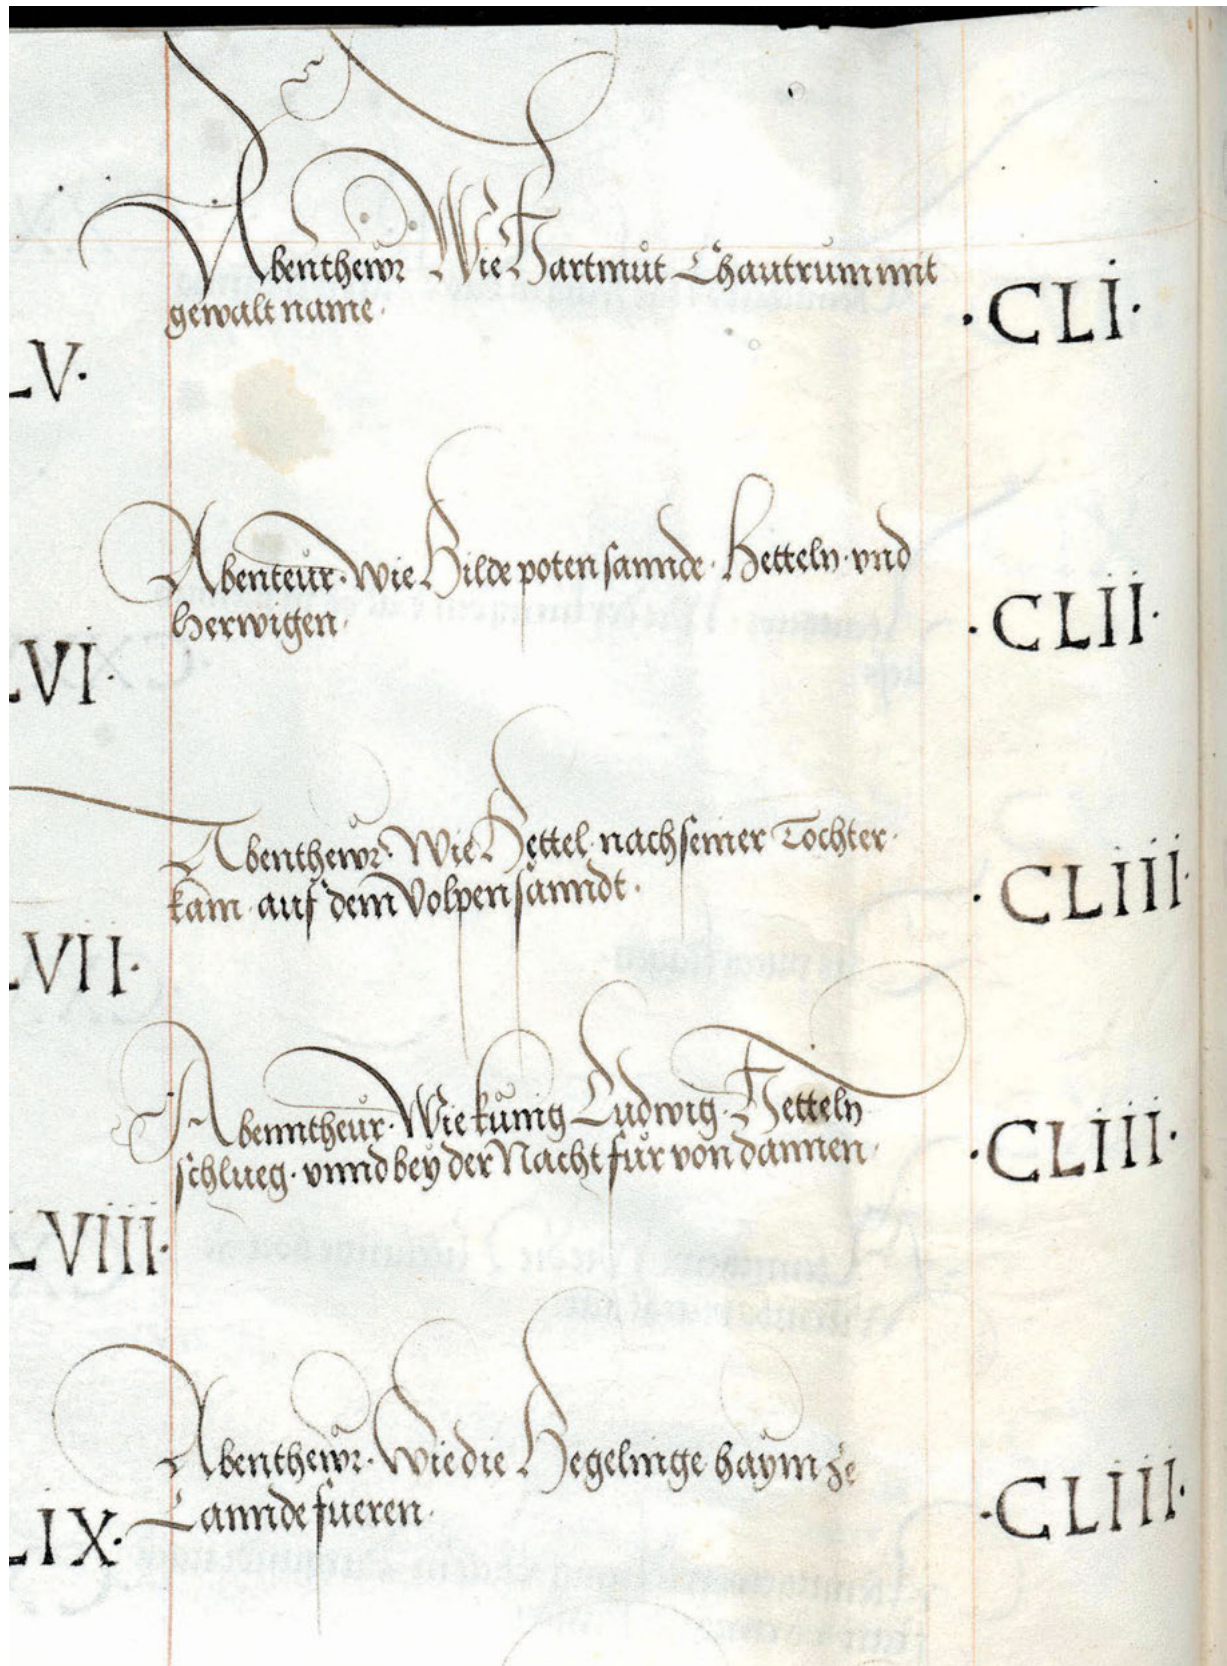 Abenthewr Wie Hartmůt Chautrum mit
gewalt name·
·CLI·
LV·
Abenteůr· wie Hilde poten sannde· Hetteln· vnd
Herwigen·
·CLII·
LVI·
Abenthewr· Wie Hettel· nach seiner Tochter·
kam· auf dem Volpensanndt·
·CLIII·
LVII·
Abenntheur· Wie kůnig Ludwig· Hetteln
schlueg· vnnd bey der Nacht fůr von dannen·
·CLIII·
LVIII·
Abenthewr· Wie die Hegelinge haym ze
Lannde fueren·
·CLIII·
LIX·